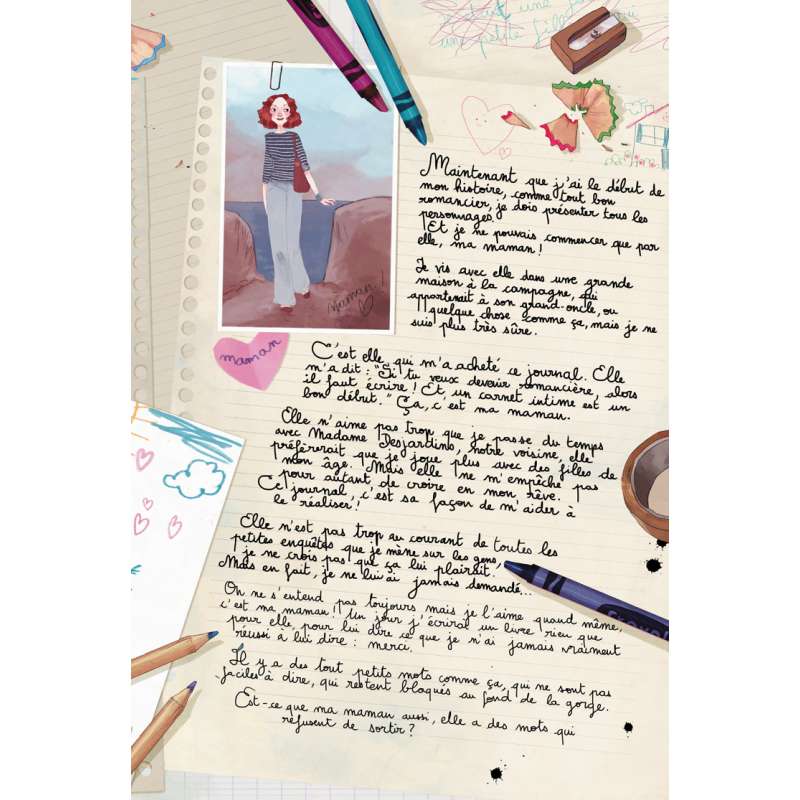 une petite fille
Maman !
maman
Maintenant que j'ai le début de
mon histoire, comme tout bon
romancier, je dois présenter tous les
personnages.
Et je ne pouvais commencer que par
elle, ma maman !
Je vis avec elle dans une grande
maison à la campagne, qui
appartenait à son grand-oncle, ou
quelque chose comme ça, mais je ne
suis plus très sûre.
C'est elle qui m'a acheté ce journal. Elle
m'a dit : "Si tu veux devenir romancière, alors
il faut écrire ! Et un carnet intime est un
bon début." Ça, c'est ma maman.
Elle n'aime pas trop que je passe du temps
avec Madame Desjardins, notre voisine, elle
préférerait que je joue plus avec des filles de
mon âge. Mais elle ne m'empêche pas
pour autant de croire en mon rêve.
Ce journal, c'est sa façon de m'aider à
le réaliser !
Elle n'est pas trop au courant de toutes les
petites enquêtes que je mène sur les gens,
je ne crois pas que ça lui plairait.
Mais en fait, je ne lui ai jamais demandé...
On ne s'entend pas toujours mais je l'aime quand même,
c'est ma maman ! Un jour j'écrirai un livre rien que
pour elle, pour lui dire ce que je n'ai jamais vraiment
réussi à lui dire : merci.
Il y a des tout petits mots comme ça, qui ne sont pas
faciles à dire, qui restent bloqués au fond de la gorge.
Est-ce que ma maman aussi, elle a des mots qui
refusent de sortir ?